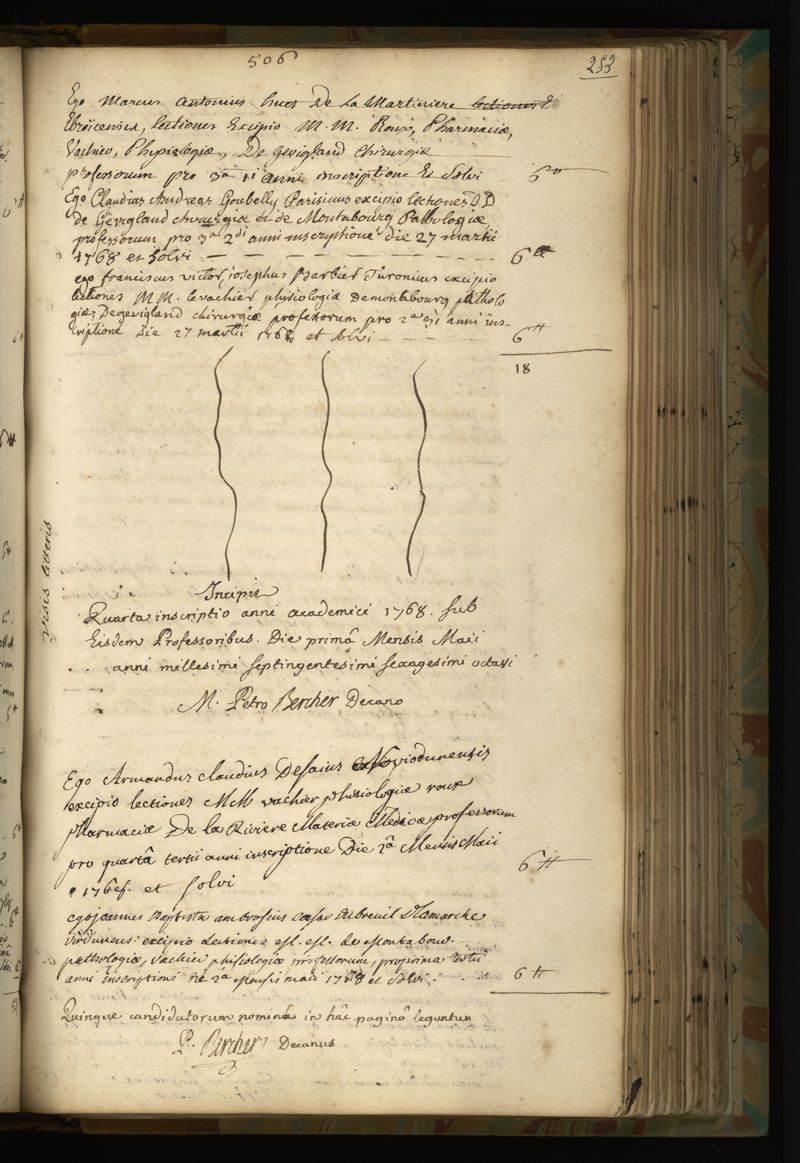 506
253
Ego Marcus Antonius huet De La Martiniere lectiones E
Ebroicensis, lectiones Excipio M. M. Roux, Pharmaciæ,
Vachier, Physiologiæ, De Gevigland Chirurgiæ
professorum pro 3a 1i anni inscriptione Et Solvi 6tt
Ego Claudius Andreas Goubelly Parisinus excipio lectiones DD
de Gevigland chirurgiæ et de Montabourg Pathologiæ
professorum pro 3a 2di anni inscriptione die 27 martii
1768 et solvi 6tt
ego franciscus victor josephus Barbier Turonius excipio
lectiones MM. levachier physiologiæ Demontabourg patholo
giæ, Degevigland chirurgiæ professorum pro 2a 3i anni ins-
criptione Die 27 martii 1768 et solvi 6tt
18
visis litteris
Incipit
Quarta inscriptio anni academici 1768. sub
Eisdem Professoribus. Die primâ Mensis Maii
anni millesimi septingentesimi sexagesimi octavi
M. Petro Bercher Decano
Ego Armandus claudius Desaius Noviodunensis
excipio lectiones MM vachier phisiologiæ roux
pharmaciæ De la Riviere Materiæ Medicæ professorum
pro quartâ tertii anni inscriptione Die 2a Mensis Maii
1768. et solvi 6tt
ego joannes Baptista ambrosius cæsar dubreuil Dlamarche
excipio Lectiones de Montabour
pathologiæ, vachier phisiologiæ professorum, pro prima tertii
anni inscriptione die 2a mensis maii 1768 et solvi. 6tt
Quinque candidatorum nomina in hâc paginâ leguntur
P. Bercher Decanus